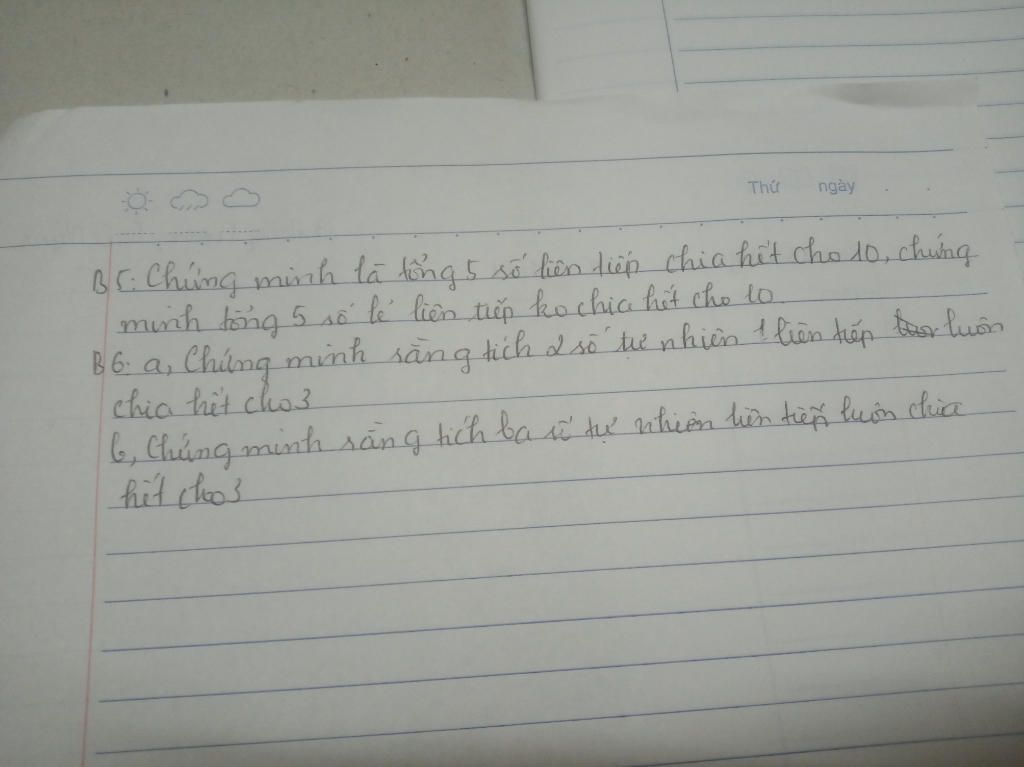 Thứ ngày
B5: Chứng minh là tổng 5 số liên tiếp chia hết cho 10, chứng
minh tổng 5 số lẻ liên tiếp ko chia hết cho 10
B6: a, Chứng minh rằng tích 2 số tự nhiên liên tiếp luôn
chia hết cho 3
b, Chứng minh rằng tích ba số tự nhiên liên tiếp luôn chia
hết cho 3